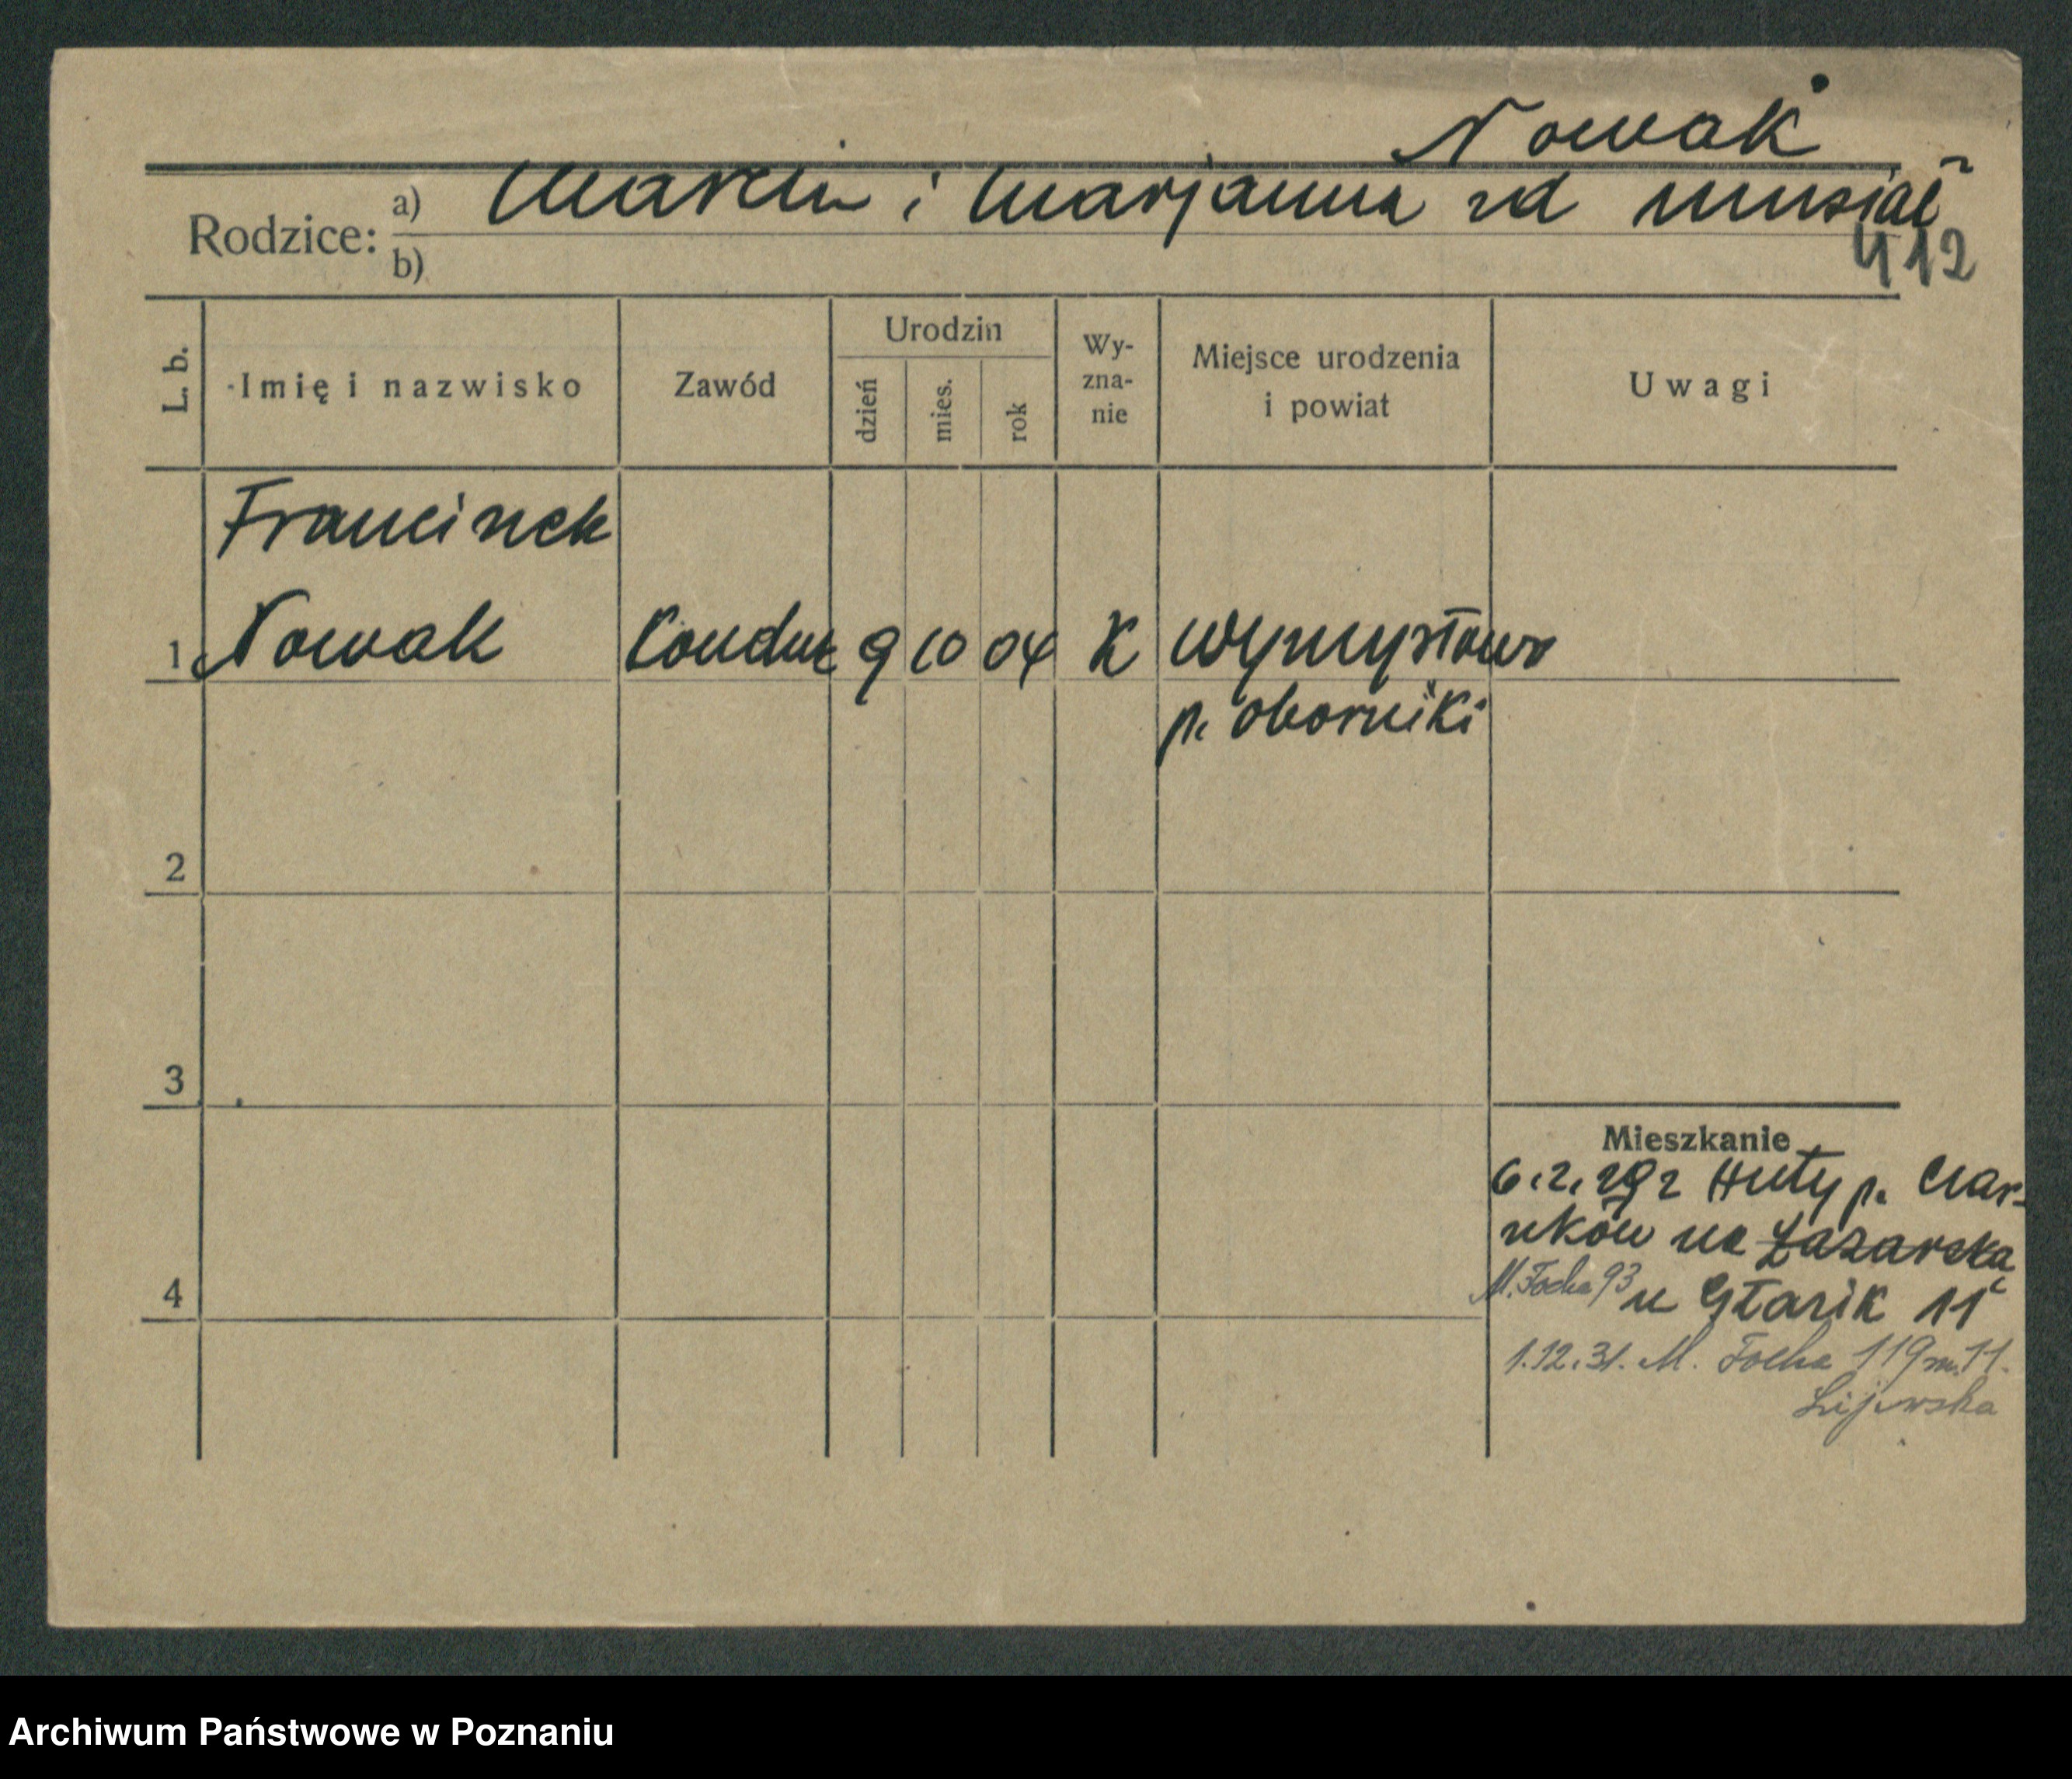 Nowak
Rodzice: a) Marcin i Marjanna zd Musiał
b)
412
L. b.
Imię i nazwisko
Zawód
Urodzin
dzień
mies.
rok
Wy-
zna-
nie
Miejsce urodzenia
i powiat
Uwagi
Franciszek
1 Nowak 9 10 04 K Wymysłowo
p. Oborniki
2
3
4
Mieszkanie
6.2.29 z Huty p. Czar-
nków na Łazarska
M. Focha 93 u 11
1.12.31. M. Focha 119 m. 11.
Lijewska
Archiwum Państwowe w Poznaniu